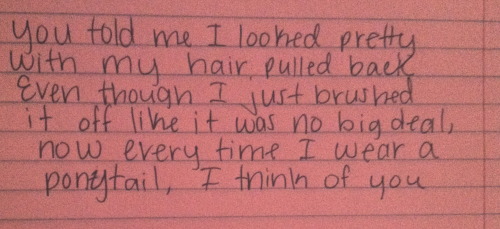 you told me I looked pretty
with my hair pulled back
Even though I just brushed
it off like it was no big deal,
now every time I wear a
ponytail, I think of you